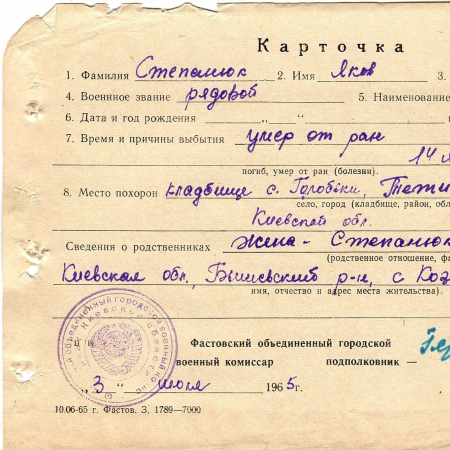 Карточка
1. Фамилия Степанюк 2. Имя Яков 3.
4. Военнное звание рядовой 5. Наименование
6. Дата и год рождения „ „
7. Время и причины выбытия умер от ран
14
погиб, умер от ран (болезни).
8. Место похорон кладбище с. Горобіки, Тети
село, город (кладбище, район, обл
Киевской обл.
Сведения о родственниках жена - Степанюк
(родственное отношение, фа
Киевская обл., Бышевский р-н, с Коз
имя, отчество и адрес места жительства).
Фастовский объединенный городской
военный комиссар подполковник —
„ 3 “ июля 1965 г.
10.06-65 г. Фастов. З. 1789—7000